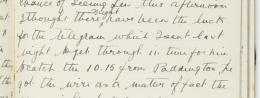 chance of seeing Len this afternoon
I thought there might have been the luck
for the telegram which I sent last
night to get through in time for him
to catch the 10.15 from Paddington, he
got the wire as a matter of fact the